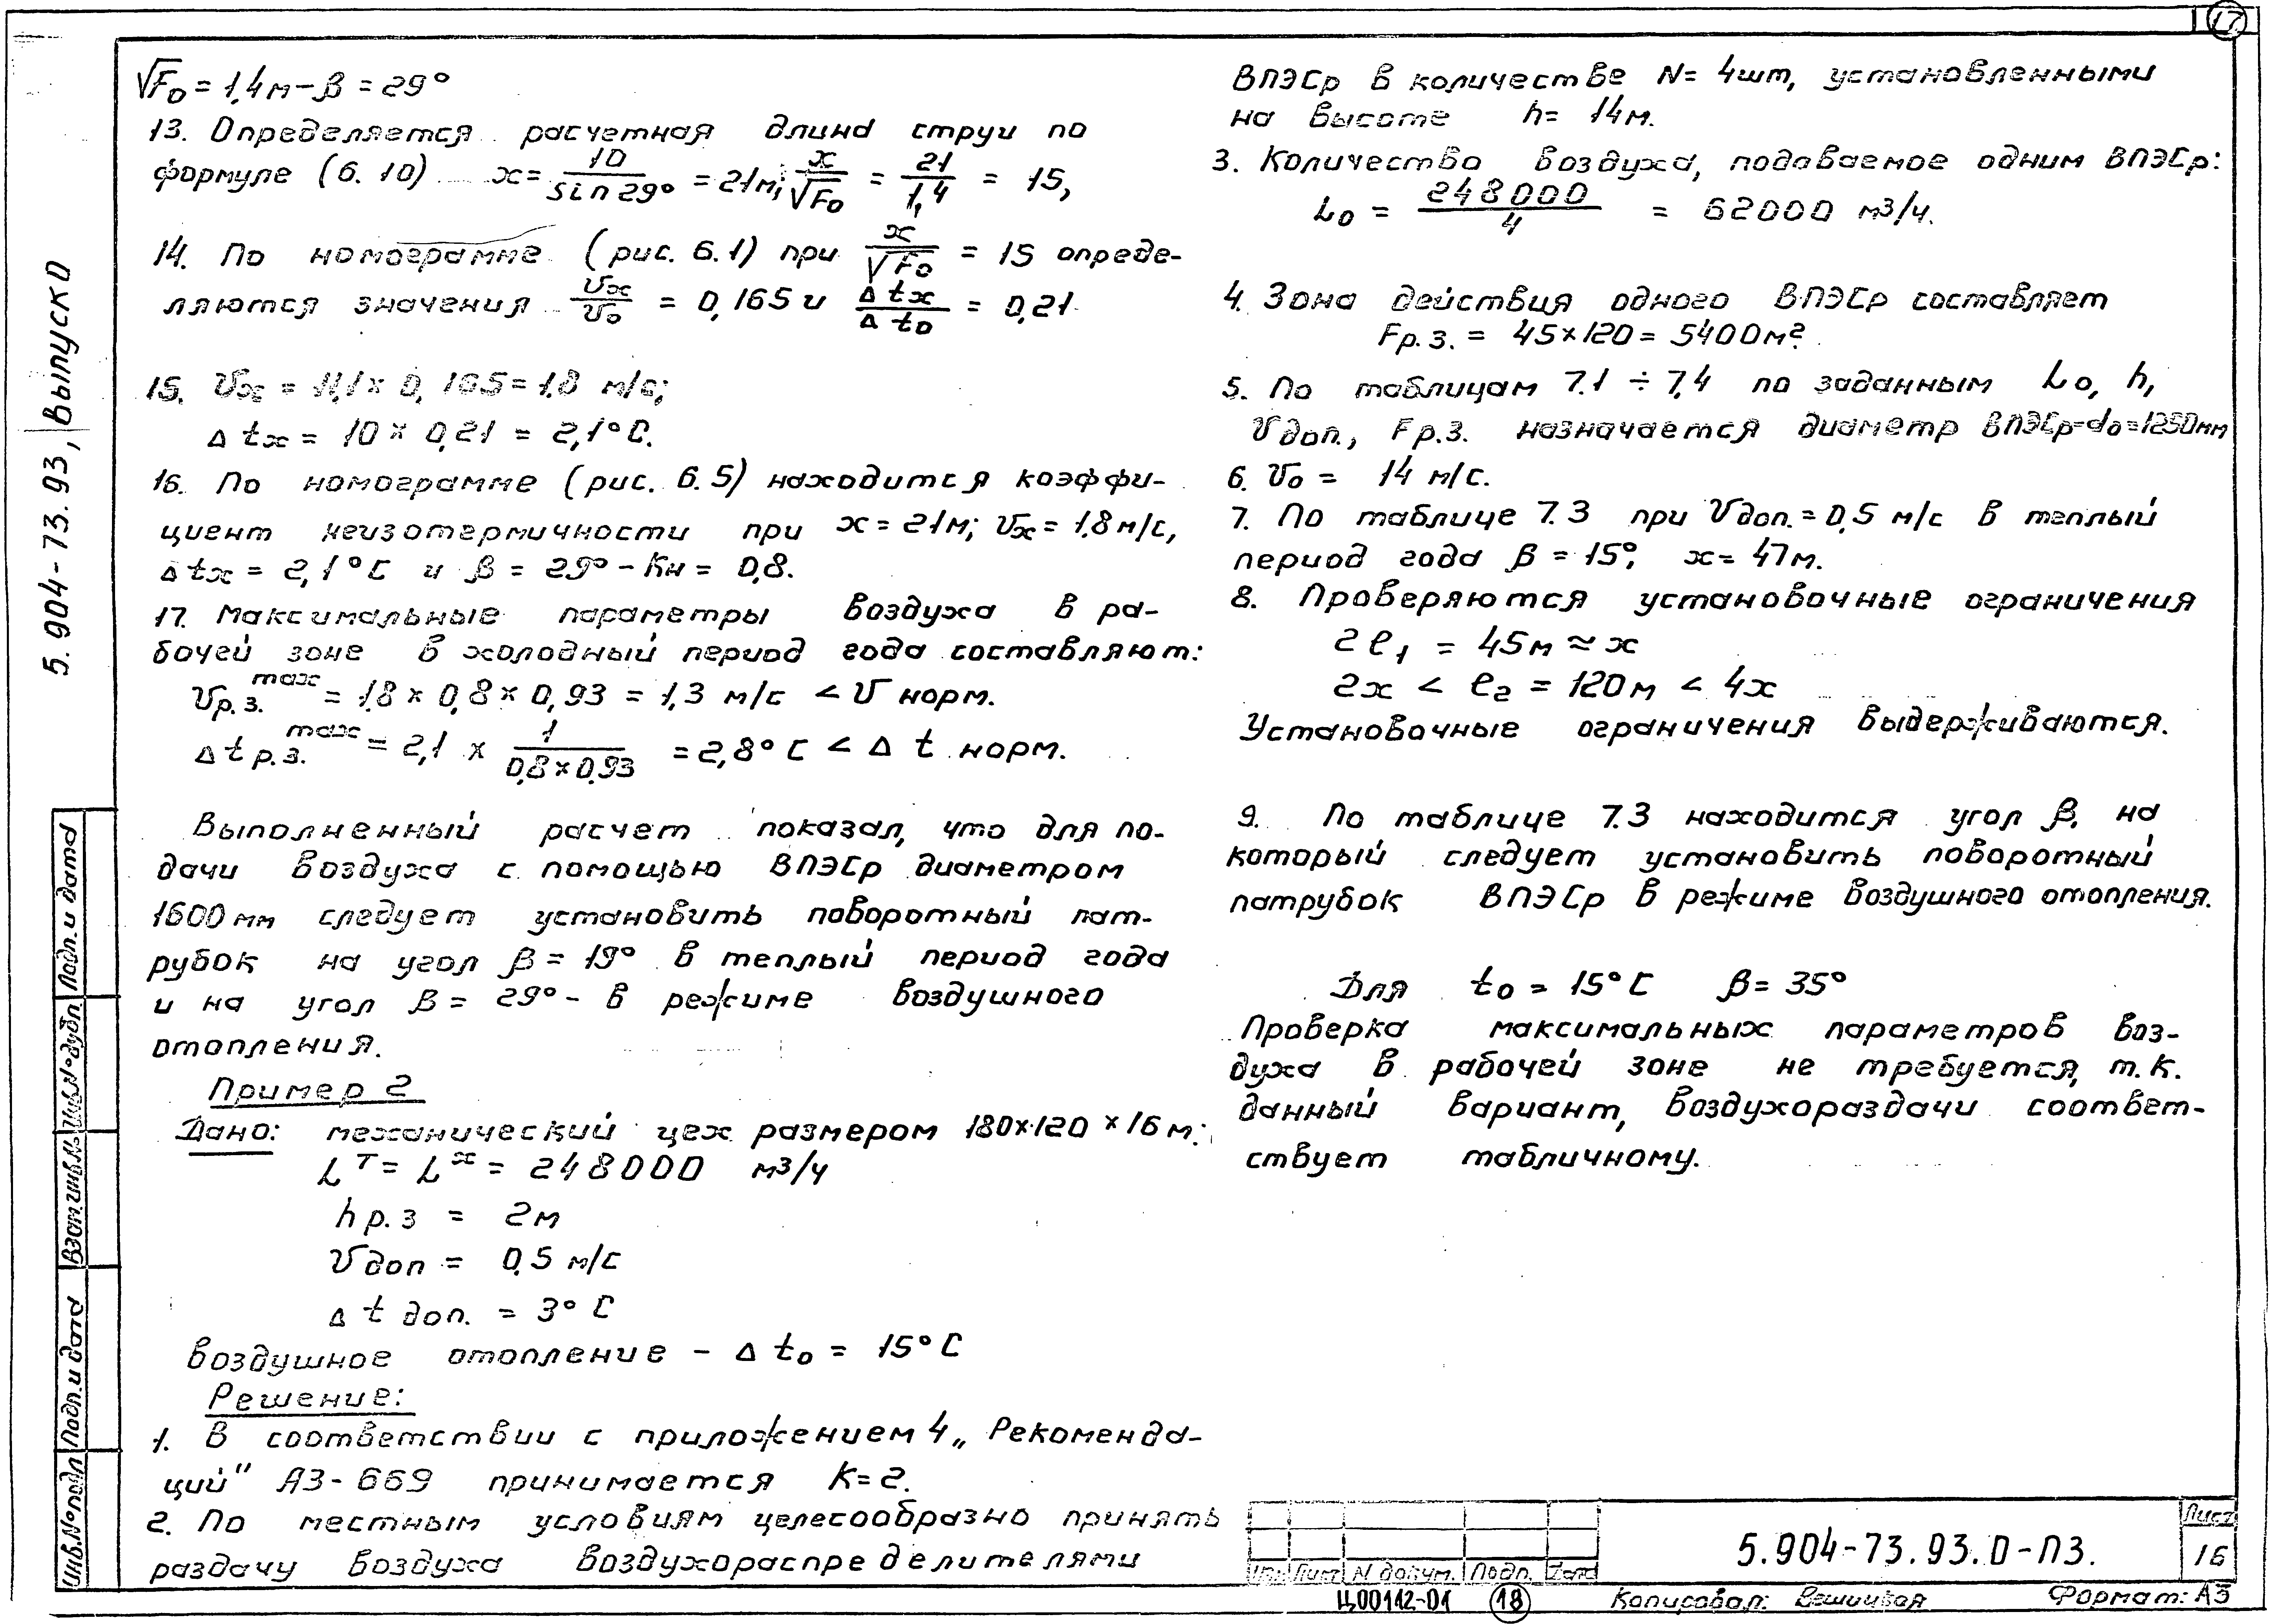 17
√F₀ = 1,4 м – β = 29°
13. Определяется расчетная длина струи по
формуле (6.10) x = 10 / sin 29° = 21 м; x / √F₀ = 21 / 1,4 = 15,
14. По номограмме (рис. 6.1) при x / √F₀ = 15 опреде-
ляются значения Vx / V₀ = 0,165 и Δtx / Δt₀ = 0,21
15. Vx = 11,1 × 0,165 = 1,8 м/с;
Δtx = 10 × 0,21 = 2,1°С.
16. По номограмме (рис. 6.5) находится коэффи-
циент неизотермичности при x = 21 м; Vx = 1,8 м/с,
Δtx = 2,1°С и β = 29° – Кн = 0,8.
17. Максимальные параметры воздуха в ра-
бочей зоне в холодный период года составляют:
Vр.з.max = 1,8 × 0,8 × 0,93 = 1,3 м/с < V норм.
Δtр.з.max = 2,1 × 1 / 0,8 × 0,93 = 2,8°С < Δt норм.
Выполненный расчет показал, что для по-
дачи воздуха с помощью ВПЭСр диаметром
1600 мм следует установить поворотный пат-
рубок на угол β = 19° в теплый период года
и на угол β = 29° – в режиме воздушного
отопления.
Пример 2
Дано: механический цех размером 180×120×16 м;
Lᵀ = Lˣ = 248000 м³/ч
hр.з = 2м
Vдоп = 0,5 м/с
Δt доп. = 3°С
воздушное отопление – Δt₀ = 15°С
Решение:
1. В соответствии с приложением 4 „Рекоменда-
ций" А3-669 принимается К=2.
2. По местным условиям целесообразно принять
раздачу воздуха воздухораспределителями
ВПЭСр в количестве N = 4шт, установленными
на высоте h = 14м.
3. Количество воздуха, подаваемое одним ВПЭСр:
L₀ = 248000 / 4 = 62000 м³/ч.
4. Зона действия одного ВПЭСр составляет
Fр.з. = 45×120 = 5400м².
5. По таблицам 7.1 ÷ 7,4 по заданным L₀, h,
Vдоп., Fр.з. назначается диаметр ВПЭСр-d₀=1250мм
6. V₀ = 14 м/с.
7. По таблице 7.3 при Vдоп. = 0,5 м/с в теплый
период года β = 15°; x = 47м.
8. Проверяются установочные ограничения
2ℓ₁ = 45м ≈ x
2x < ℓ₂ = 120м < 4x
Установочные ограничения выдерживаются.
9. По таблице 7.3 находится угол β, на
который следует установить поворотный
патрубок ВПЭСр в режиме воздушного отопления.
Для t₀ = 15°С β = 35°
Проверка максимальных параметров воз-
духа в рабочей зоне не требуется, т.к.
данный вариант, воздухораздачи соответ-
ствует табличному.
5.904-73.93, Выпуск 0
Подп. и дата
Инв.№ дубл.
Взам.инв.№
Подп. и дата
Инв.№ подл
Лист N докум. Подп. Дата
5.904-73.93.0-ПЗ.
Лист
16
Ц00112-01 18 Копировал: Формат: А3